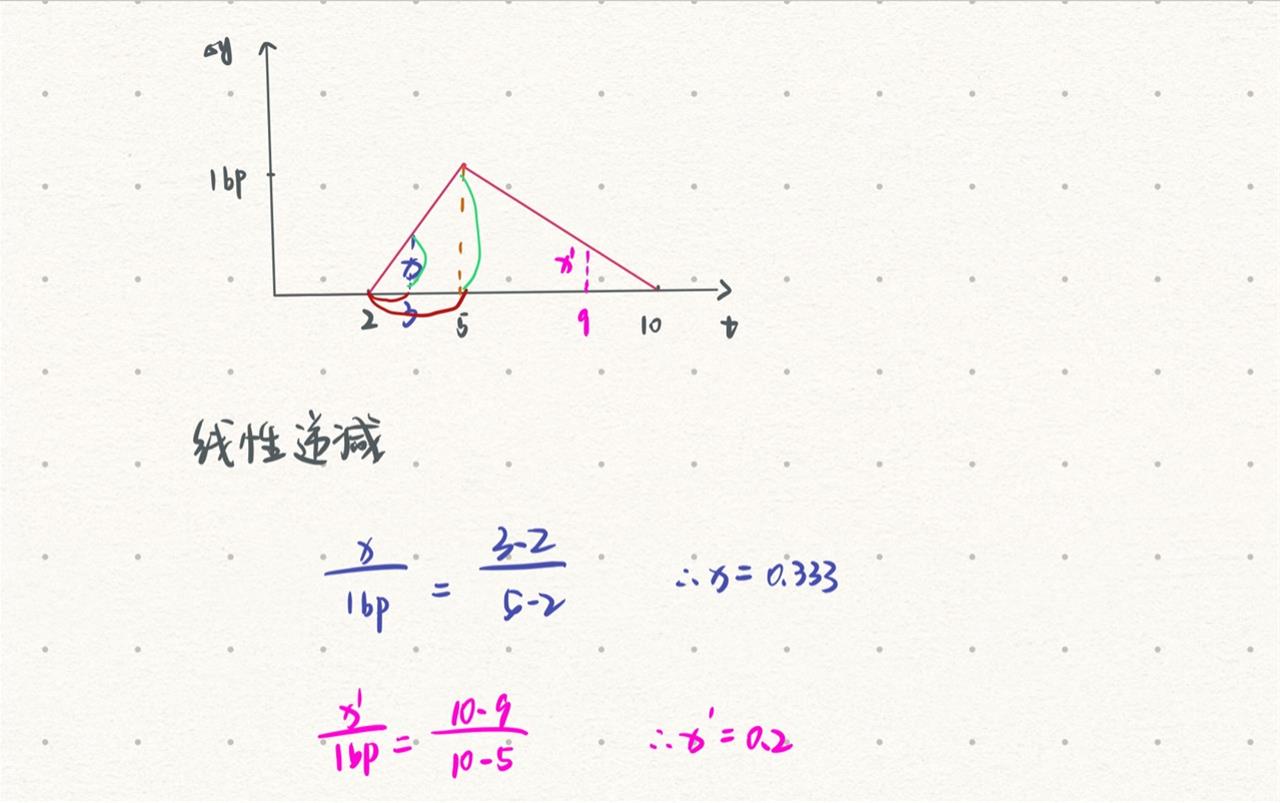 Δy
1bp
x
x'
2 3 5 9 10 t
线性递减
x/1bp = 3-2/5-2 ∴x=0.333
x'/1bp = 10-9/10-5 ∴x'=0.2